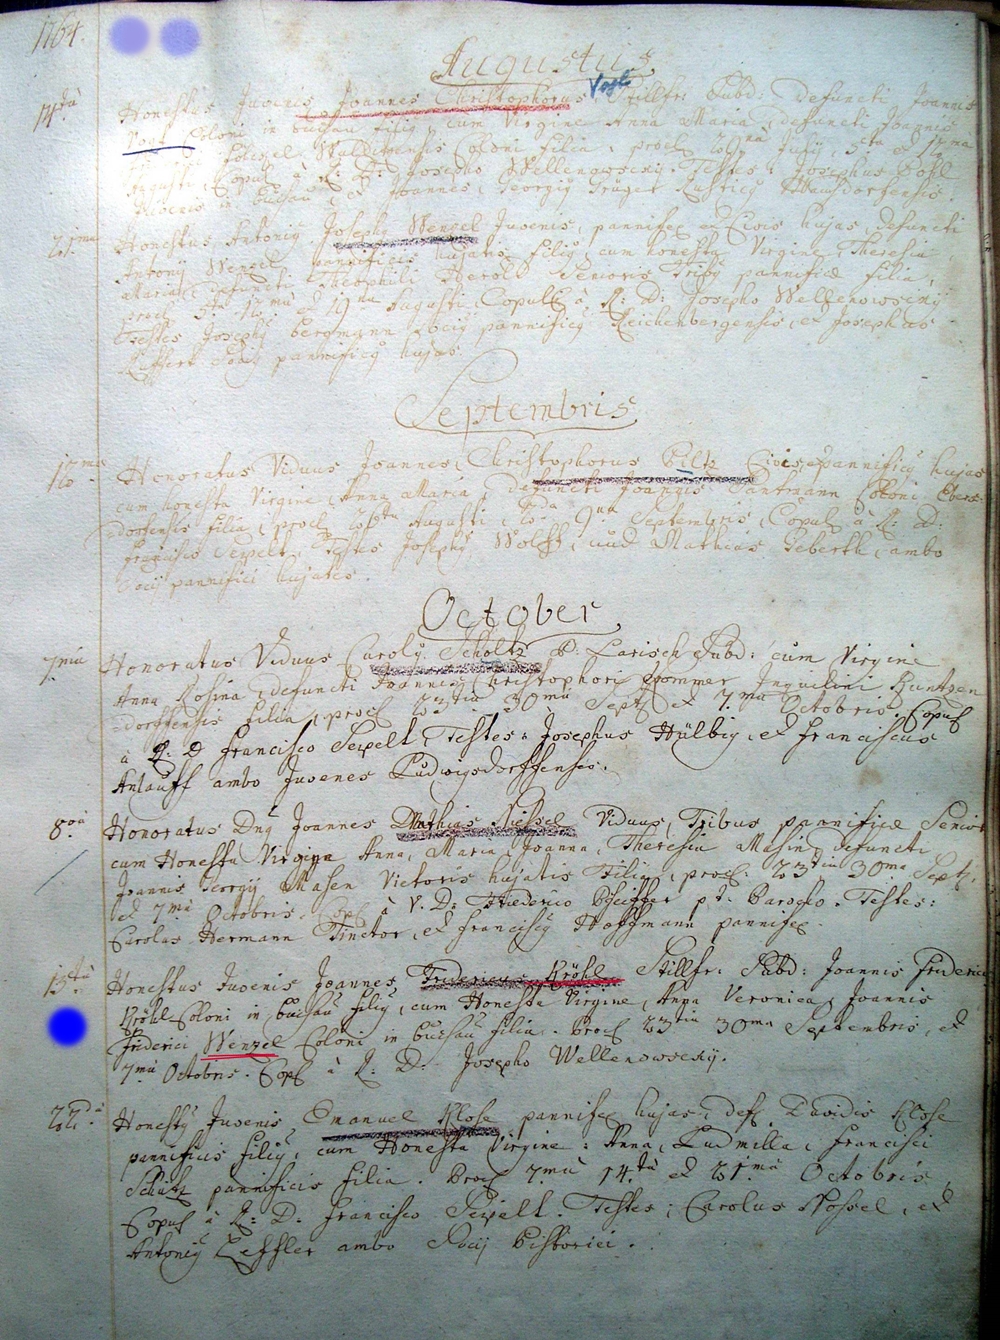 1764.
Augustus
14ta Honestus Juvenis Joannes Christophorus Vogt Stillfr: Subd: defuncti Joannis
Vogt Coloni in Buchau filiq, cum Virgine Anna Maria, defuncti Joannis
Coloni filia, procl: 29na July, 5ta et 12ma
Augusti, Copul: à R: D: Josepho Wellenowsky. Testes: Josephus Pohl
Juvenis in Buchau, et Joannes Georgiq
21ma Honestus Antoniq Josephq Wenzel Juvenis, pannifex et Civis hujas defuncti
Antonij Wenzel pannificis hujatis filiq, cum honesta Virgine Theresia
Maria, defuncti Theophili Herold Senioris Tribq pannificæ filia,
procl: 5ta 12ma et 19na Augusti, Copul: à R: D: Josepho Wellenowsky
Testes Josephq Bergmann Sociq pannificq Reichenbergensis, et Josephus
Socq pannificq hujas.
Septembris
Honoratus Viduus Joannes Christophorus Civis et pannificq hujas
cum honesta Virgine Anna Maria, defuncti Joannis Coloni Ebers=
dorfensis filia, procl: Augusti, 2da 9na Septembris, Copul: à R: D:
Francisco Seipelt. Testes Josephq Wolff, Mathias Geberth, ambo
Socij pannifici hujates.
October
7ma Honoratus Viduus Carolq Scholtz P: Larisch Subd: cum Virgine
Anna Rosina, defuncti Joannis Christophori Pommer Inquilini Kuntzen
dorffensis filia, procl: 23tia 30ma Sept: et 7ma Octobris. Copul:
à R: D Francisco Seipelt, Testes: Josephus Hülbig, et Franciscus
Anlauff ambo Juvenes Ludwigsdorffenses.
8va Honoratus Dnq Joannes Mathias Niessel Viduus, Tribus pannificæ Senior
cum Honesta Virgine Anna, Maria, Joanna, Theresia Masin, defuncti
Joannis Georgij Masen hujatis filia, procl: 23tia 30ma Sept:
et 7ma Octobris. Copl: à V: D: Friederico Pfeiffer pt: Parocho. Testes:
Carolus Hermann Tinctor, et Franciscq Hoffmann pannifex.
15ta Honestus Juvenis Joannes Fridericus Kröhl Stillfr: Subd: Joannis Friderici
Kröhl Coloni in Buchau filiq, cum Honesta Virgine, Anna Veronica, Joannis
Friderici Wenzel Coloni in Buchau filia. Procl: 23tia 30ma Septembris, et
7ma Octobris. Copl: à R: D: Josepho Wellenowsky.
22da Honestq Juvenis Emanuel Klose pannifex hujas, def: Davidis Klose
pannificis filiq, cum Honesta Virgine: Anna, Ludmilla, Francisci
Schütz pannificis filia. Procl: 7ma 14ta et 21ma Octobris,
Copul: à R: D: Francisco Seipelt. Testes: Carolus Nossel, et
Antoniq Leffler ambo Socij Pistorici.